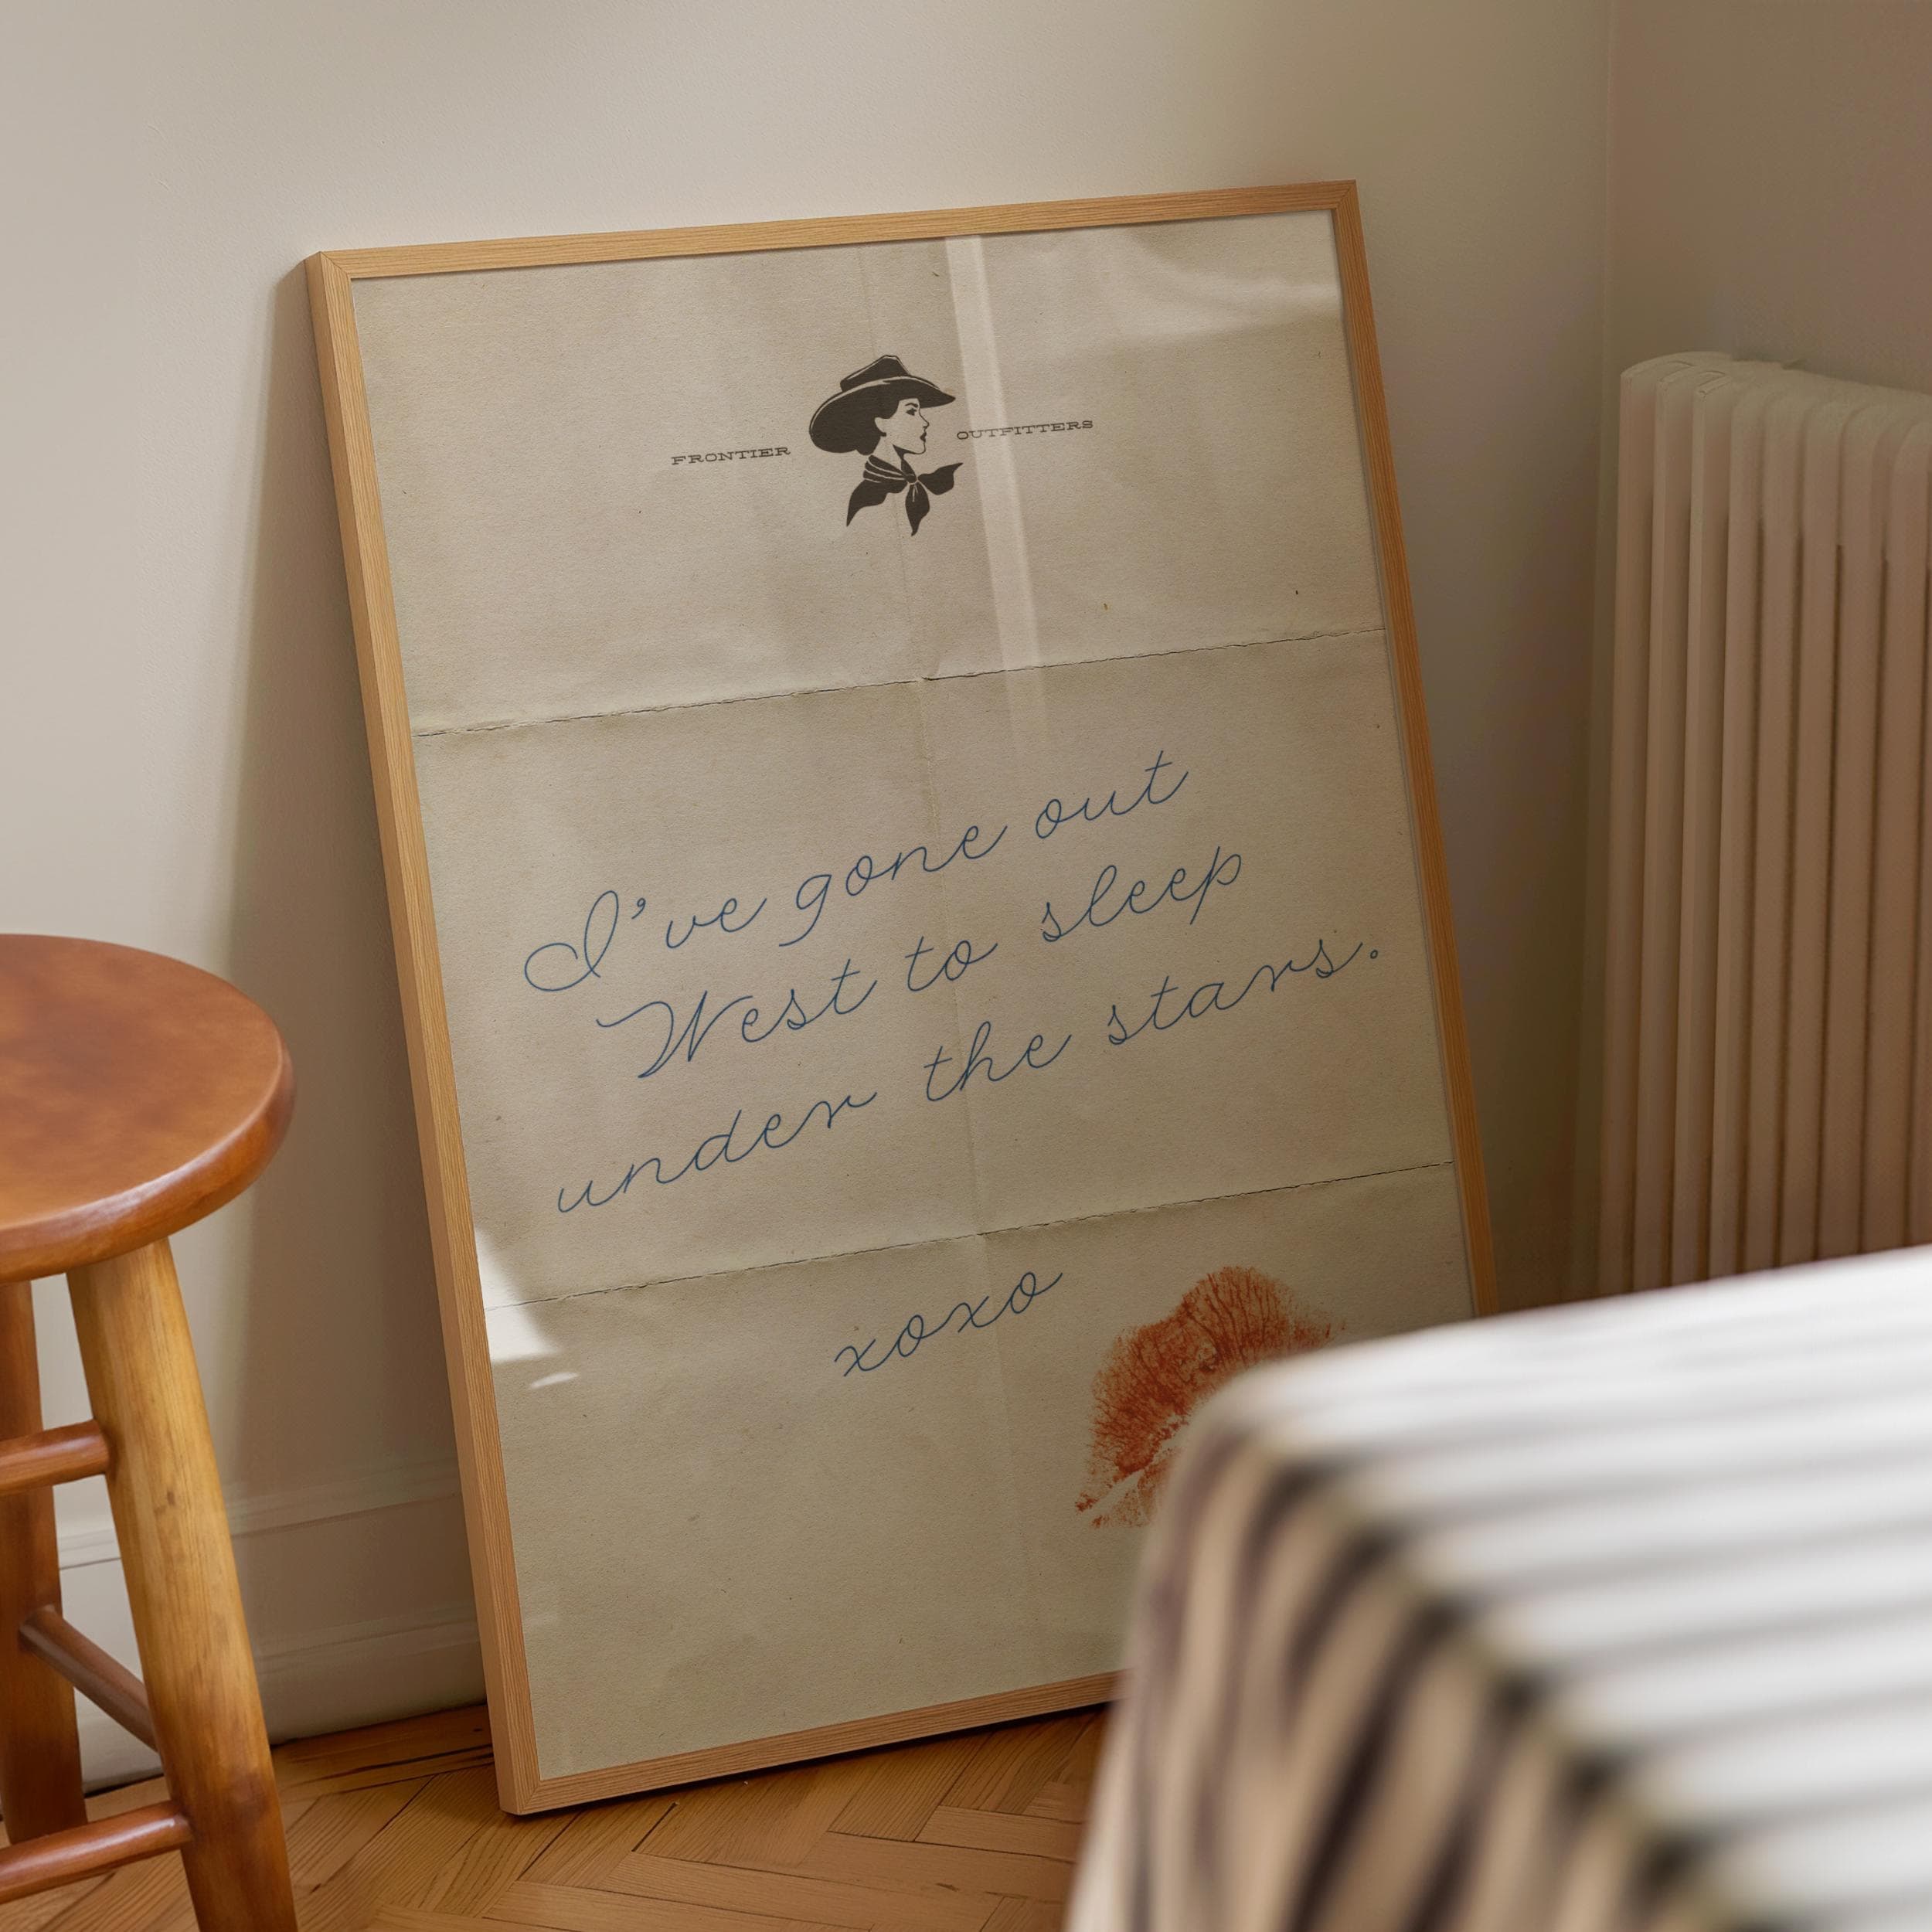 FRONTIER OUTFITTERS
I've gone out
West to sleep
under the stars.
xoxo